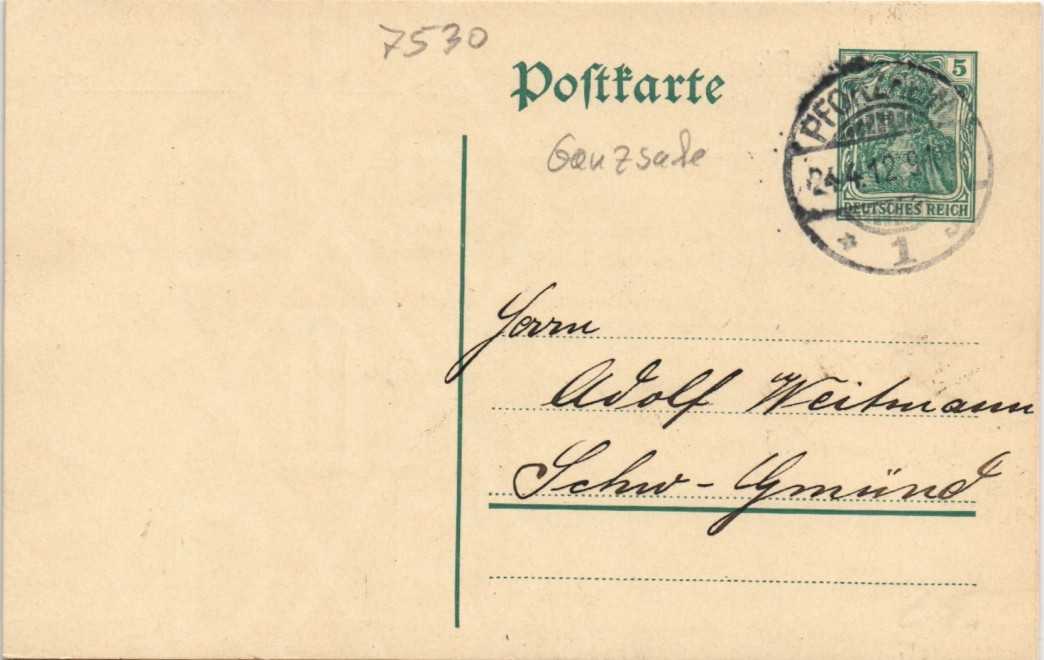 7530
Postkarte
5
PFORZHEIM
24.4.12.
DEUTSCHES REICH
* 1
Ganzsache
Herrn
Adolf Weitmann
Schw-Gmünd